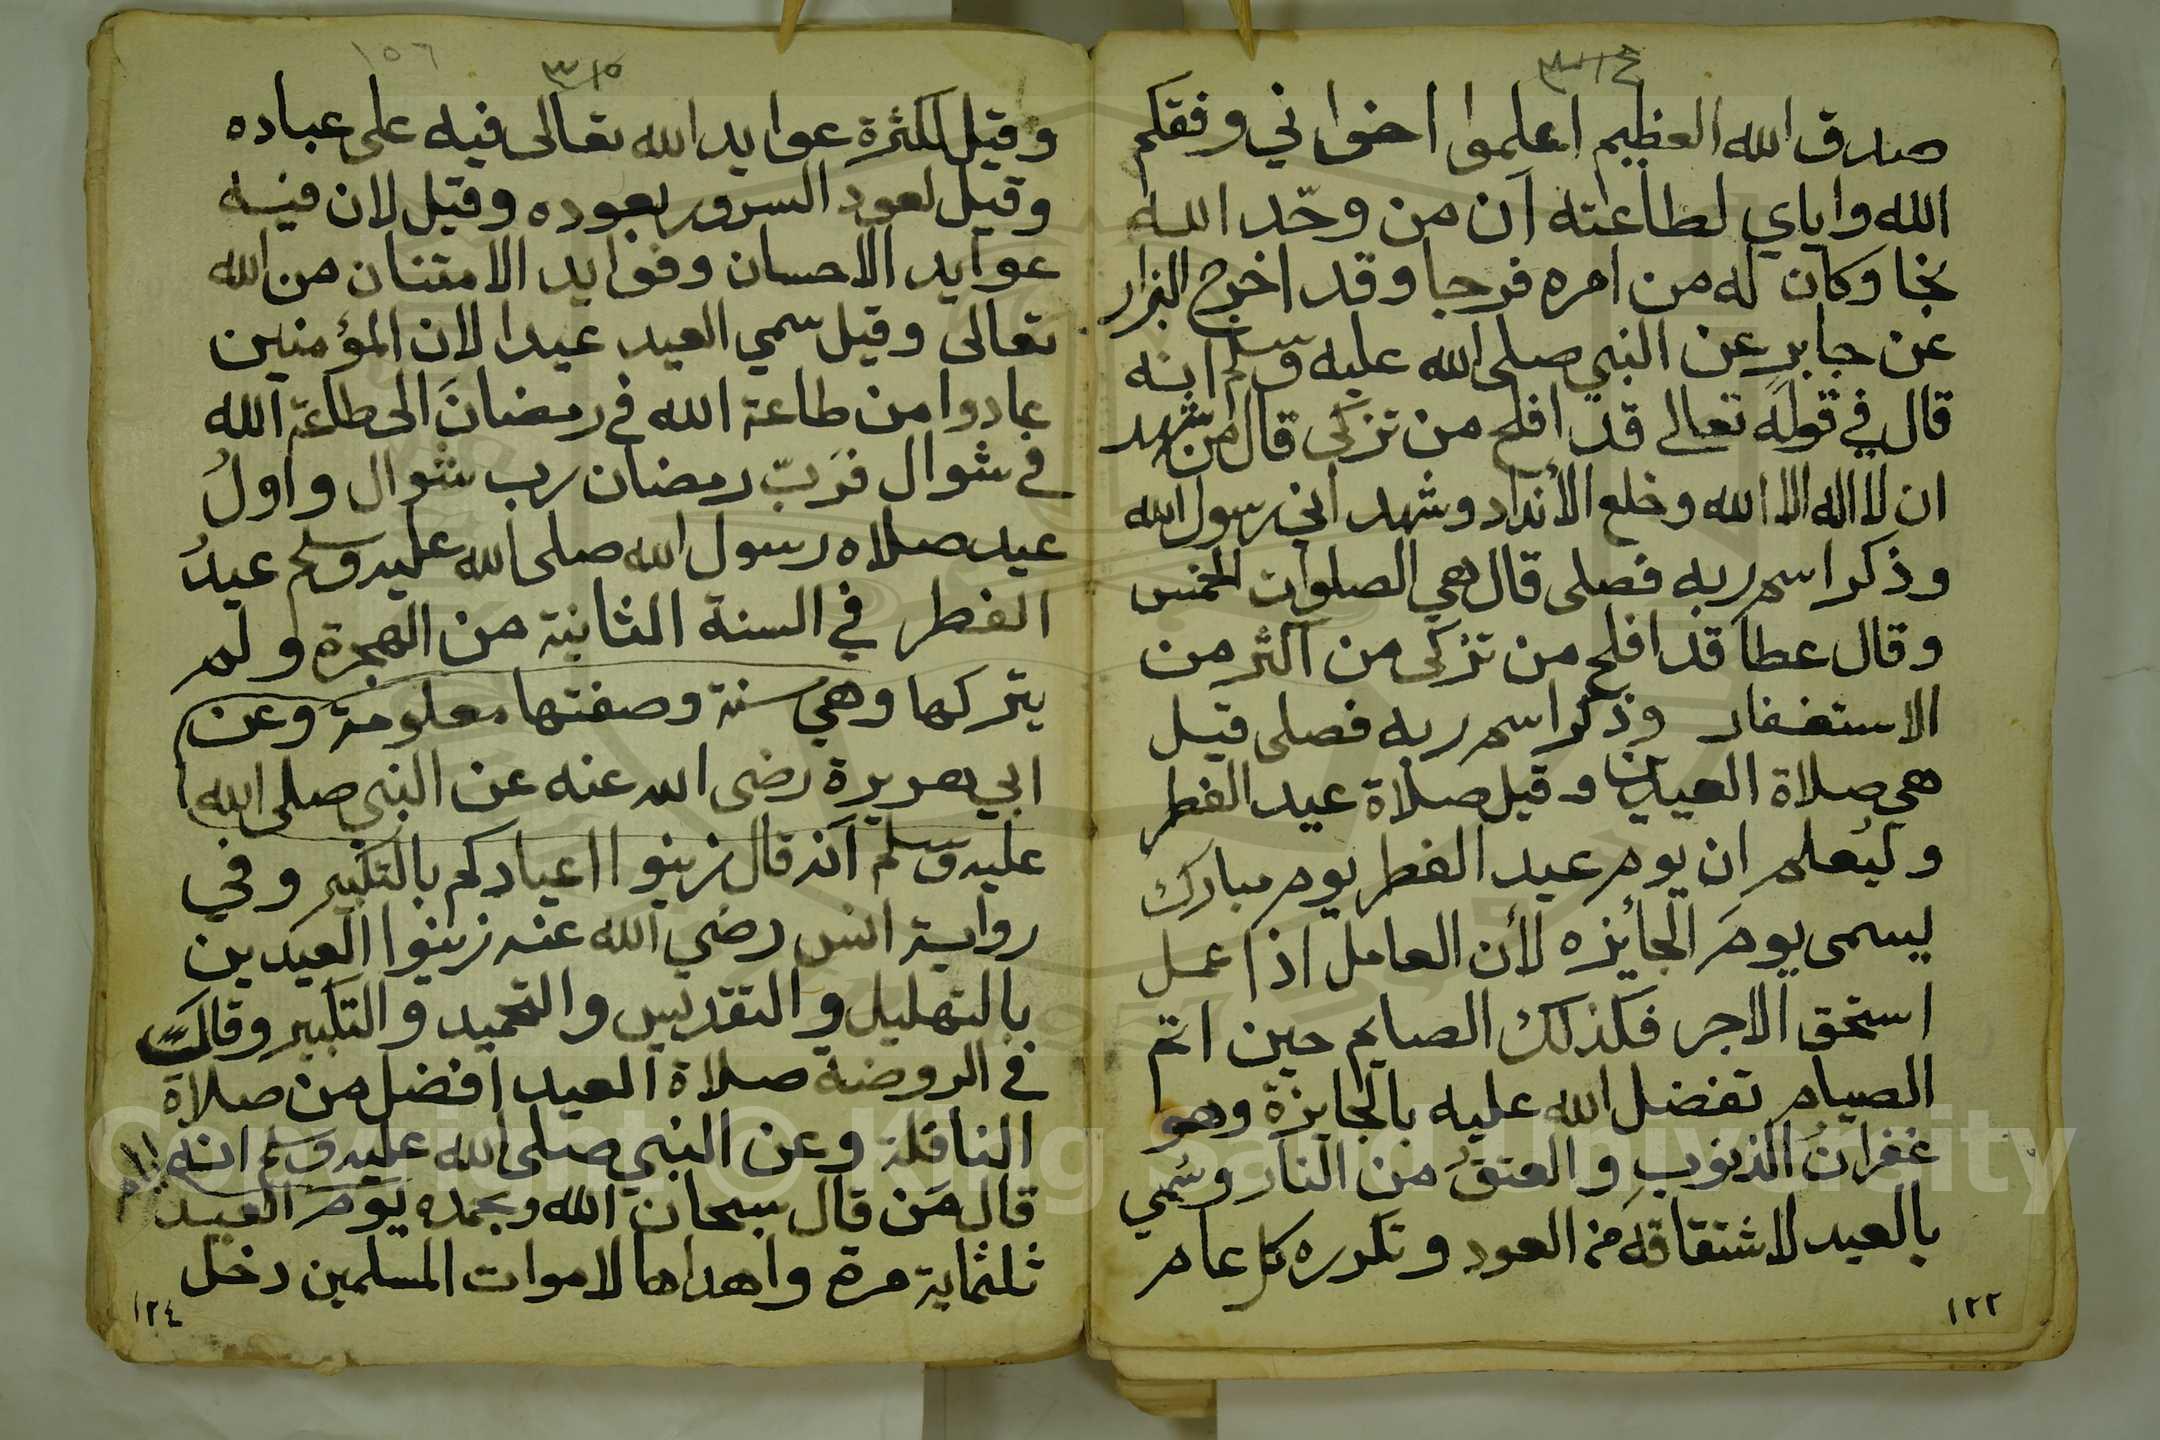 صدق الله العظيم اعلموا اخواني وفقكم
الله واياي لطاعته ان من وحّد الله
نجا وكان له من امره فرجا وقد اخرج البزار
عن جابر عن النبي صلى الله عليه وسلم انه
قال في قوله تعالى قد افلح من تزكى قال من شهد
ان لا اله الا الله وخلع الأنداد وشهد اني رسول الله
وذكر اسم ربه فصلى قال هي الصلوات الخمس
وقال عطا قد افلح من تزكى من اكثر من
الاستغفار وذكر اسم ربه فصلى قيل
هي صلاة العيدين وقيل صلاة عيد الفطر
وليُعلم ان يوم عيد الفطر يوم مبارك
يسمى يومَ الجائزه لأن العامل اذا عمل
استحق الاجر فكذلك الصايم حين اتم
الصيام تفضل الله عليه بالجايزة وهو
غفرانُ الذنوبِ والعتقُ من النار وسُمي
بالعيد لاشتقاقه من العود وتكرره كل عام
١٢٢
٣١٥
١٥٦
وقيل لكثرة عوايد الله تعالى فيه على عباده
وقيل لعود السرور بعوده وقيل لان فيه
عوايد الاحسان وفوايد الامتنان من الله
تعالى وقيل سمي العيد عيدا لان المؤمنين
عادوا من طاعة الله في رمضانَ الى طاعة الله
في شوال فرَبّ رمضان رب شوال واولُ
عيد صلاه رسول الله صلى الله عليه وسلم عيدُ
الفطر في السنة الثانية من الهجرة ولم
يتركها وهي سنة وصفتها معلومة وعن
ابي هريرة رضى الله عنه عن النبي صلى الله
عليه وسلم انه قال زينوا اعيادكم بالتكبير وفي
رواية انس رضي الله عنه زينوا العيدين
بالتهليل والتقديس والتحميد والتكبير وقال
في الروضة صلاة العيد افضل من صلاة
النافلة وعن النبي صلى الله عليه وسلم انه
قال مَن قال سبحان الله وبحمده يوم العيد
ثلثماية مرة واهداها لاموات المسلمين دخل
١٢٤
Copyright © King Saud University